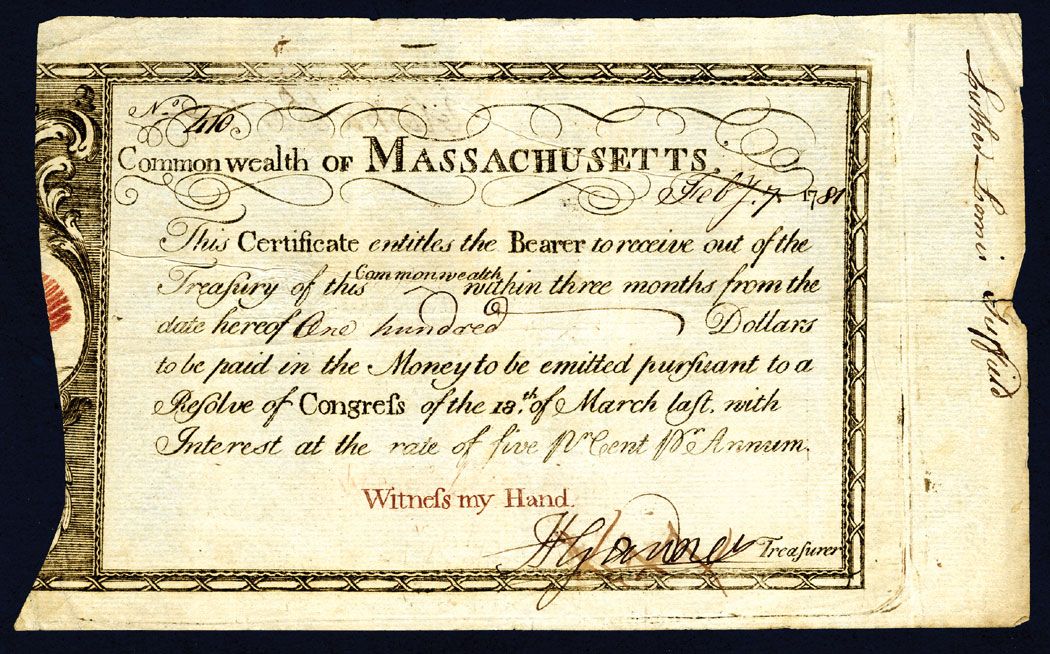 No. 416
Commonwealth OF MASSACHUSETTS,
Feby. 7. 1781
This Certificate entitles the Bearer to receive out of the
Treaſury of this Commonwealth within three months from the
date hereof One hundred Dollars
to be paid in the Money to be emitted purſuant to a
Reſolve of Congreſs of the 18.th of March laſt. with
Interest at the rate of five Pr. Cent Pr. Annum.
Witneſs my Hand.
H Gardner Treaſurer
Luther Loomis Suffield